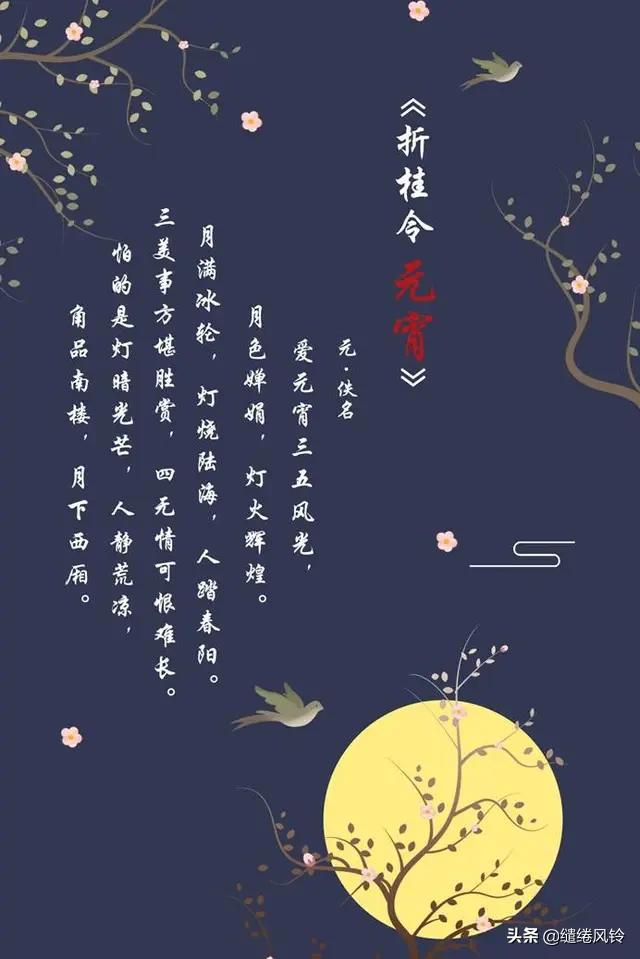 《折桂令 元宵》
元·佚名
爱元宵三五风光，
月色婵娟，灯火辉煌。
月满冰轮，灯烧陆海，人踏春阳。
三美事方堪胜赏，四无情可恨难长。
怕的是灯暗光芒，人静荒凉，
角品南楼，月下西厢。
头条 @缱绻风铃